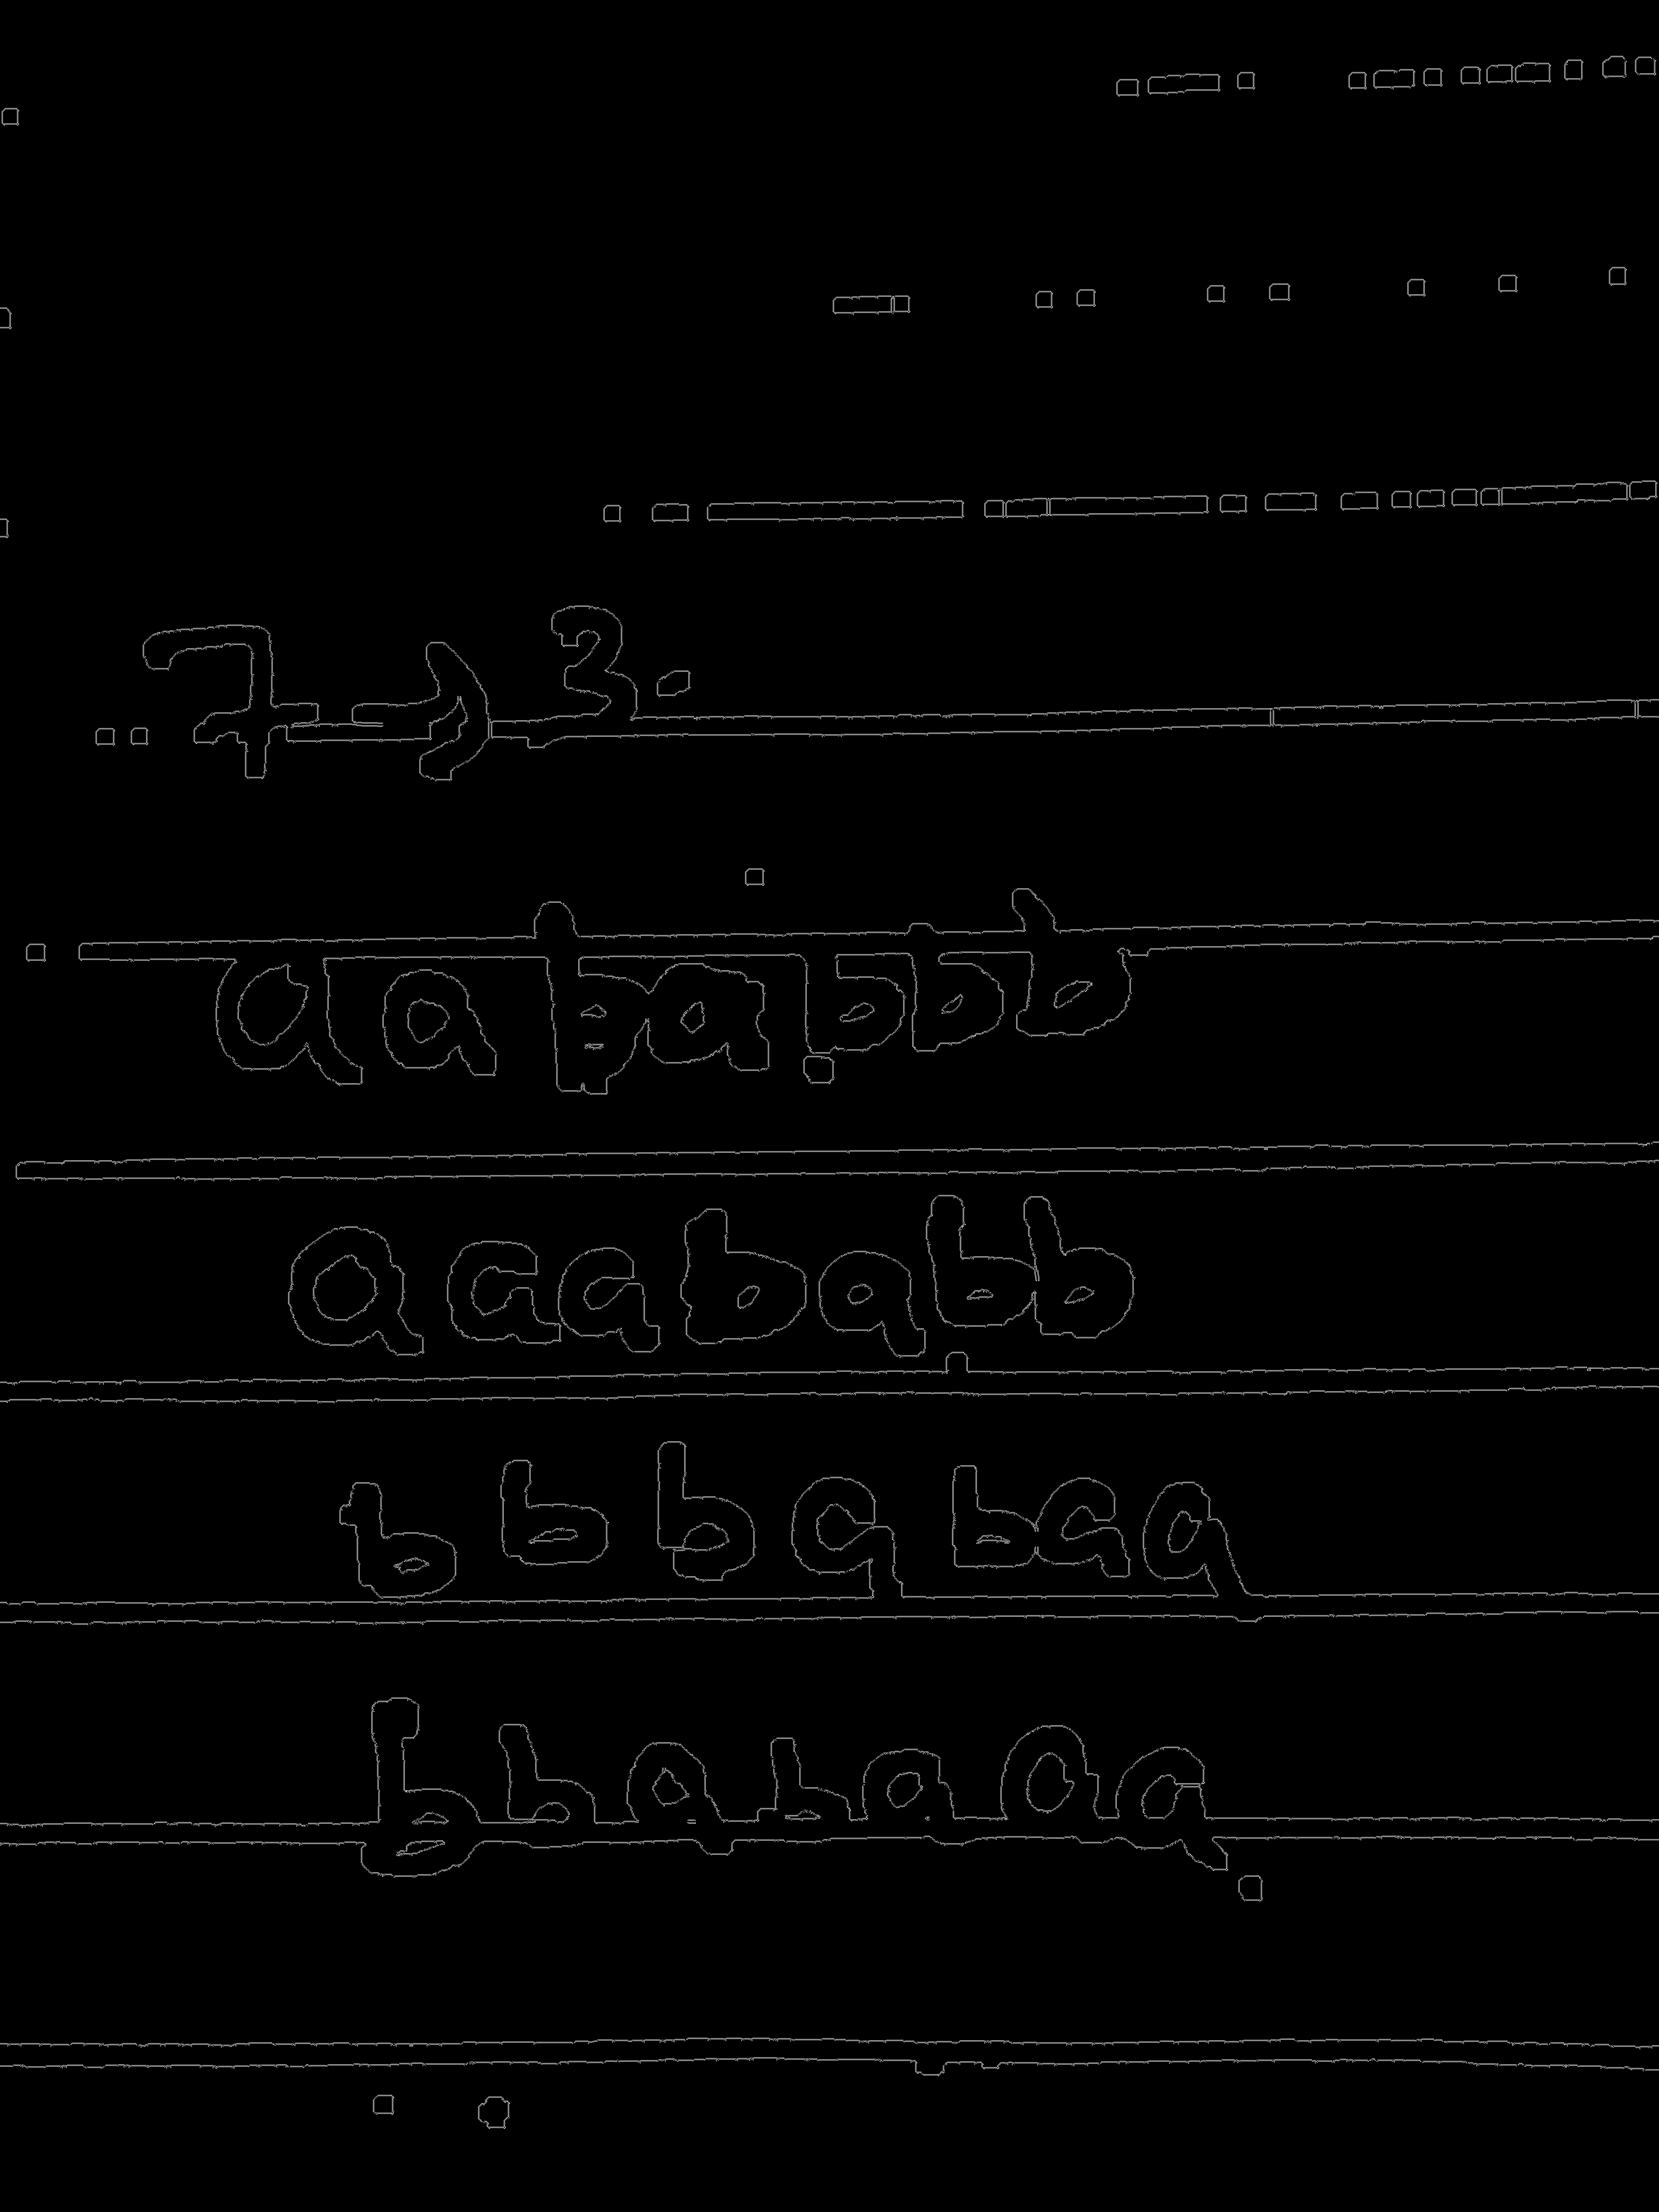 7-) 3.
aababbb
aaababb
bbbabaa
bbabaaa